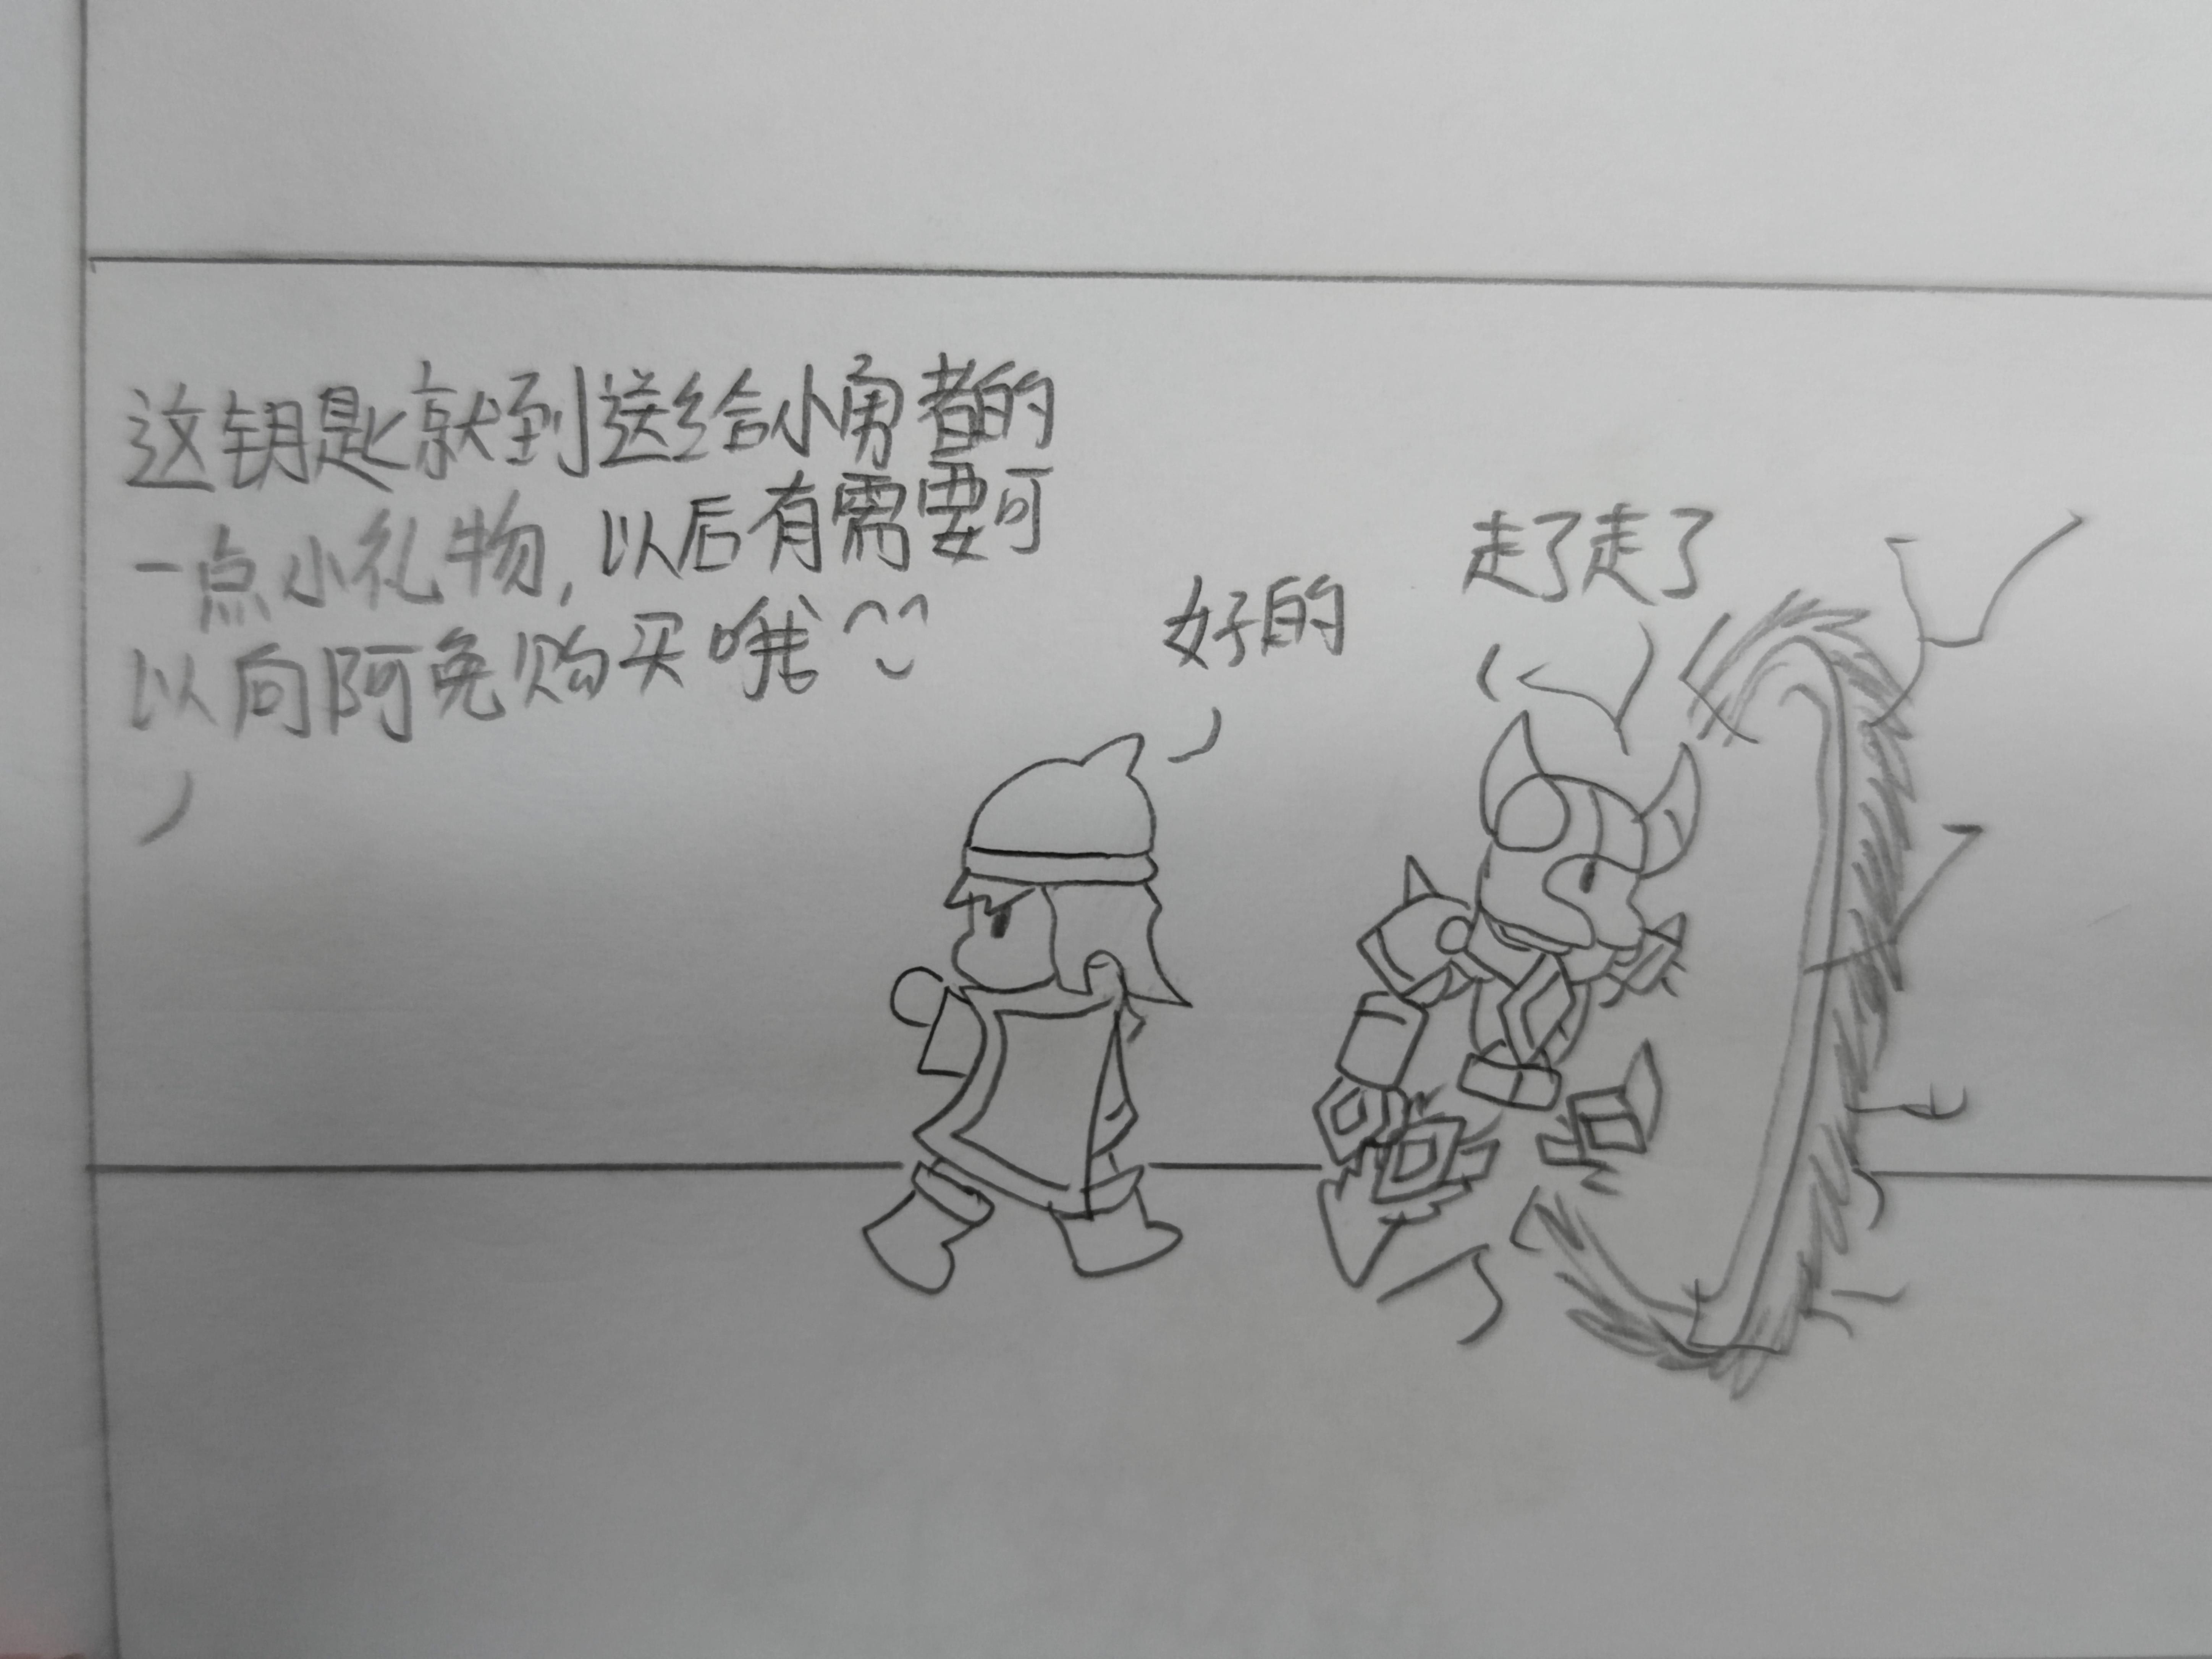 这钥匙就到送给小勇者的
一点小礼物,以后有需要可
以向阿兔购买哦^^
好的
走了走了